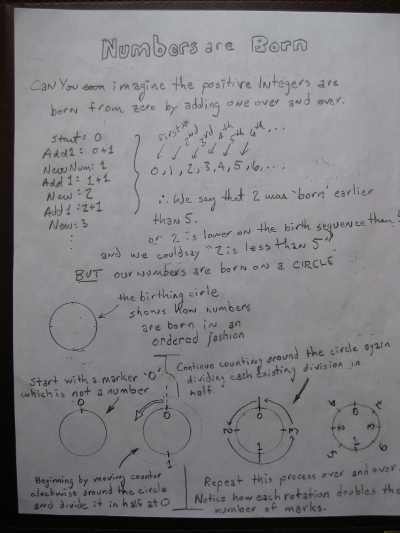 Numbers are Born
Can You imagine the positive Integers are
born from zero by adding one over and over.
Start: 0
Add 1: 0+1
New Num: 1
Add 1: 1+1
New: 2
Add 1: 2+1
New: 3
⋮
First # 2nd 3rd 4th 5th 6th, ...
0, 1, 2, 3, 4, 5, 6, ...
∴ We say that 2 was 'born' earlier
than 5.
or 2 is lower on the birth sequence than 5
and we could say "2 is less than 5"
BUT our numbers are born on a CIRCLE
the birthing cirle
shows how numbers
are born in an
ordered fashion
Start with a marker '0'
which is not a number
Continue counting around the circle again
dividing each existing division in
half
0
0
1
0
2
3
1
0
2
3
1
5
6
Beginning by moving counter
clockwise around the circle
and divide it in half at 0
Repeat this process over and over.
Notice how each rotation doubles the
number of marks.